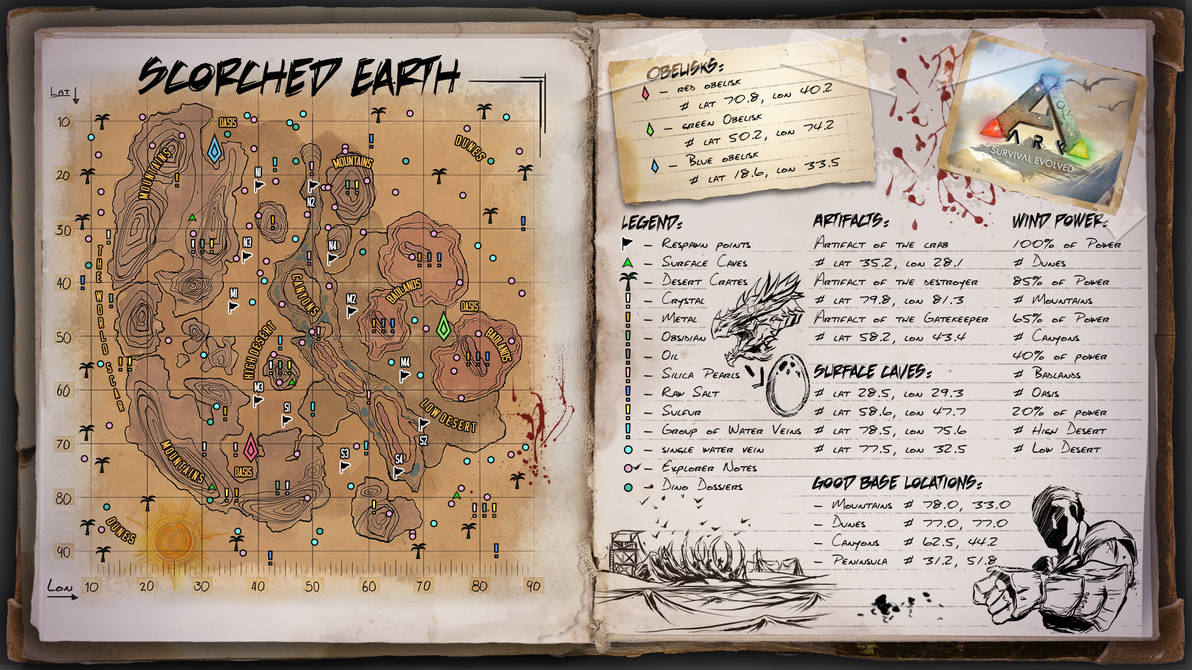 SCORCHED EARTH
LAT
10
20
30
40
50
60
70
80
90
LON
10
20
30
40
50
60
70
80
90
OASIS
MOUNTAINS
MOUNTAINS
DUNES
N1
N2
N3
N4
THE WORLD SCAR
M1
M2
CANYONS
BADLANDS
OASIS
BADLANDS
HIGH DESERT
M4
M3
S1
LOW DESERT
S2
MOUNTAINS
OASIS
S3
S4
DUNES
OBELISKS:
– RED OBELISK
# LAT 70.8, LON 40.2
– GREEN OBELISK
# LAT 50.2, LON 74.2
– BLUE OBELISK
# LAT 18.6, LON 33.5
ARK
SURVIVAL EVOLVED
LEGEND:
– RESPAWN POINTS
– SURFACE CAVES
– DESERT CRATES
– CRYSTAL
– METAL
– OBSIDIAN
– OIL
– SILICA PEARLS
– RAW SALT
– SULFUR
– GROUP OF WATER VEINS
– SINGLE WATER VEIN
– EXPLORER NOTES
– DINO DOSSIERS
ARTIFACTS:
ARTIFACT OF THE CRAB
# LAT 35.2, LON 28.1
ARTIFACT OF THE DESTROYER
# LAT 79.8, LON 81.3
ARTIFACT OF THE GATEKEEPER
# LAT 58.2, LON 43.4
SURFACE CAVES:
# LAT 28.5, LON 29.3
# LAT 58.6, LON 47.7
# LAT 78.5, LON 75.6
# LAT 77.5, LON 32.5
GOOD BASE LOCATIONS:
– MOUNTAINS # 78.0, 33.0
– DUNES # 77.0, 77.0
– CANYONS # 62.5, 44.2
– PENINSULA # 31.2, 51.8
WIND POWER:
100% OF POWER
# DUNES
85% OF POWER
# MOUNTAINS
65% OF POWER
# CANYONS
40% OF POWER
# BADLANDS
# OASIS
20% OF POWER
# HIGH DESERT
# LOW DESERT